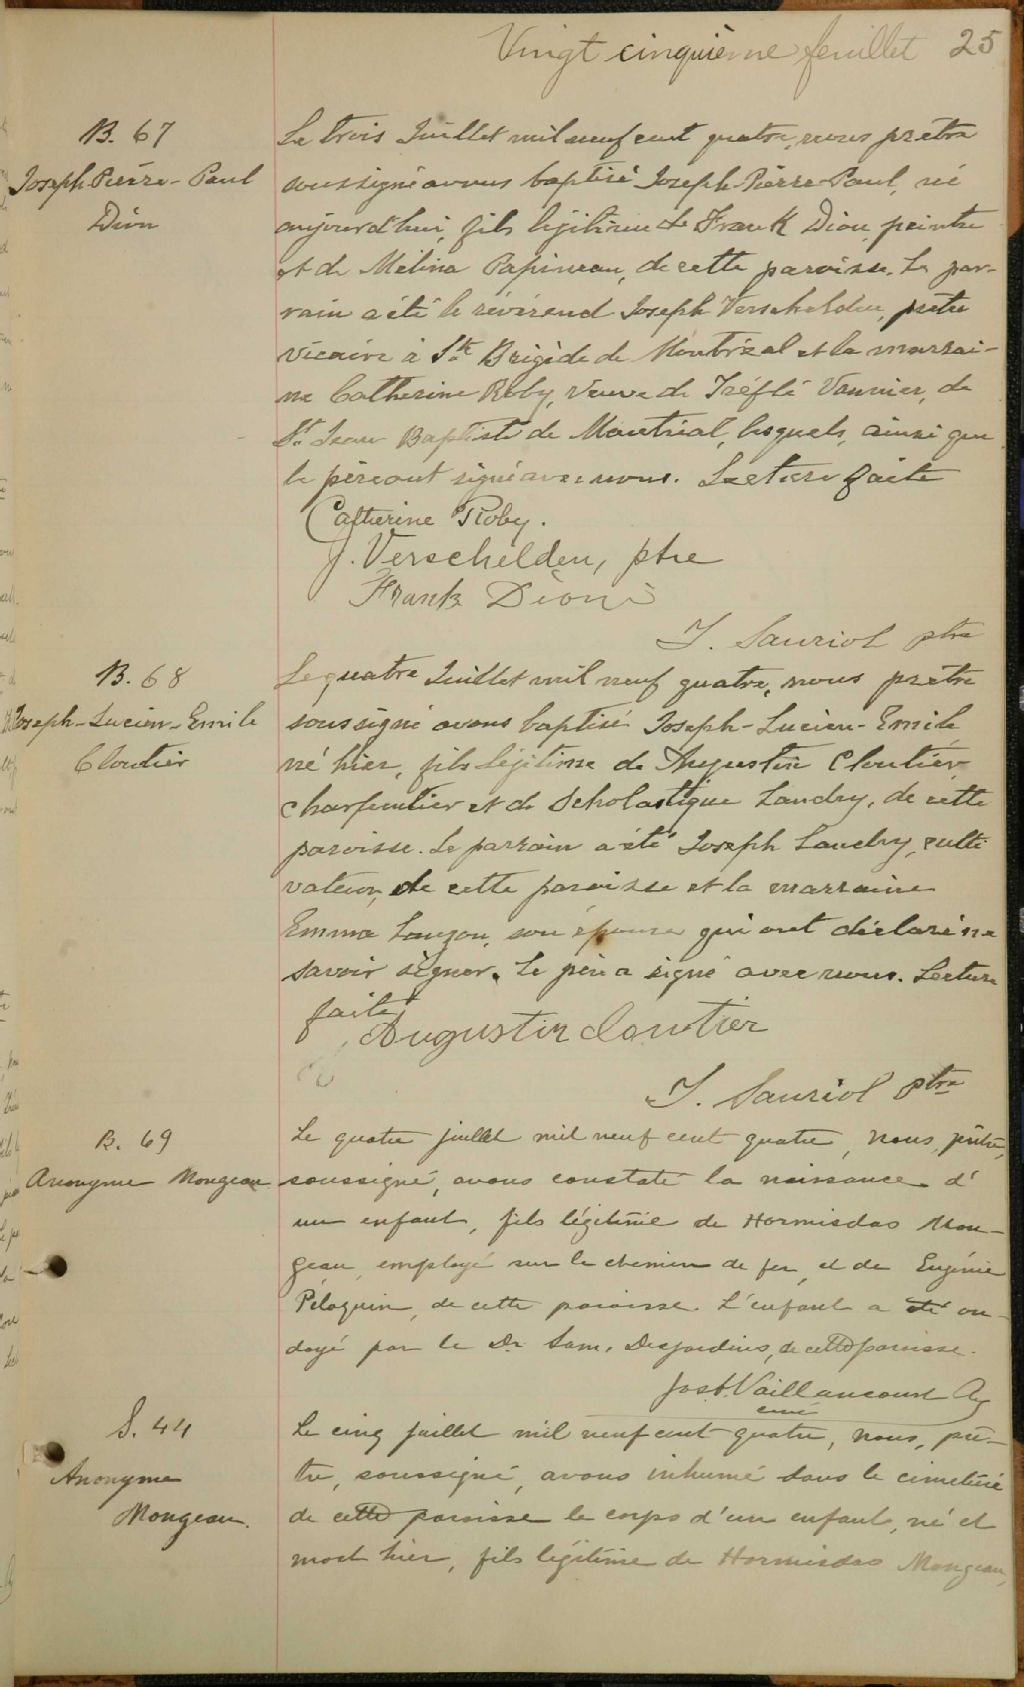 Vingt cinquième feuillet 25
B. 67
Joseph-Pierre-Paul
Dion
Le trois Juillet mil neuf cent quatre, nous prêtre
soussigné avons baptisé Joseph-Pierre-Paul, né
aujourd'hui, fils légitime de Frank Dion, peintre
et de Mélina Papineau, de cette paroisse. Le par-
rain a été le révérend Joseph Verschelden, prêtre
vicaire à Ste Brigide de Montréal et la marrai-
ne Catherine Roby, veuve de Tréflé Vannier, de
St Jean Baptiste de Montréal, lesquels, ainsi que
le père ont signé avec nous. Lecture faite
Catherine Roby.
J. Verschelden, ptre
Frank Dion
J. Sauriol ptre
B. 68
Joseph-Lucien-Emile
Cloutier
Le quatre Juillet mil neuf quatre, nous prêtre
soussigné avons baptisé Joseph-Lucien-Emile
né hier, fils légitime de Augustin Cloutier
charpentier et de Scholastique Landry, de cette
paroisse. Le parrain a été Joseph Landry, culti
vateur, de cette paroisse et la marraine
Emma Lauzon, son épouse qui ont déclaré ne
savoir signer. Le père a signé avec nous. Lecture
faite
Augustin Cloutier
J. Sauriol ptre
B. 69
Anonyme Mongeau
Le quatre juillet mil neuf cent quatre, nous, prêtre,
soussigné, avons constaté la naissance d'
un enfant, fils légitime de Hormisdas Mon-
geau, employé sur le chemin de fer, et de Eugénie
Péloquin, de cette paroisse. L'enfant a été on-
doyé par le Dr Sam. Desjardins, de cette paroisse.
Jos. Vaillancourt
curé
S. 44
Anonyme
Mongeau.
Le cinq juillet mil neuf cent quatre, nous, prê-
tre, soussigné, avons inhumé dans le cimetière
de cette paroisse le corps d'un enfant, né et
mort hier, fils légitime de Hormisdas Mongeau,